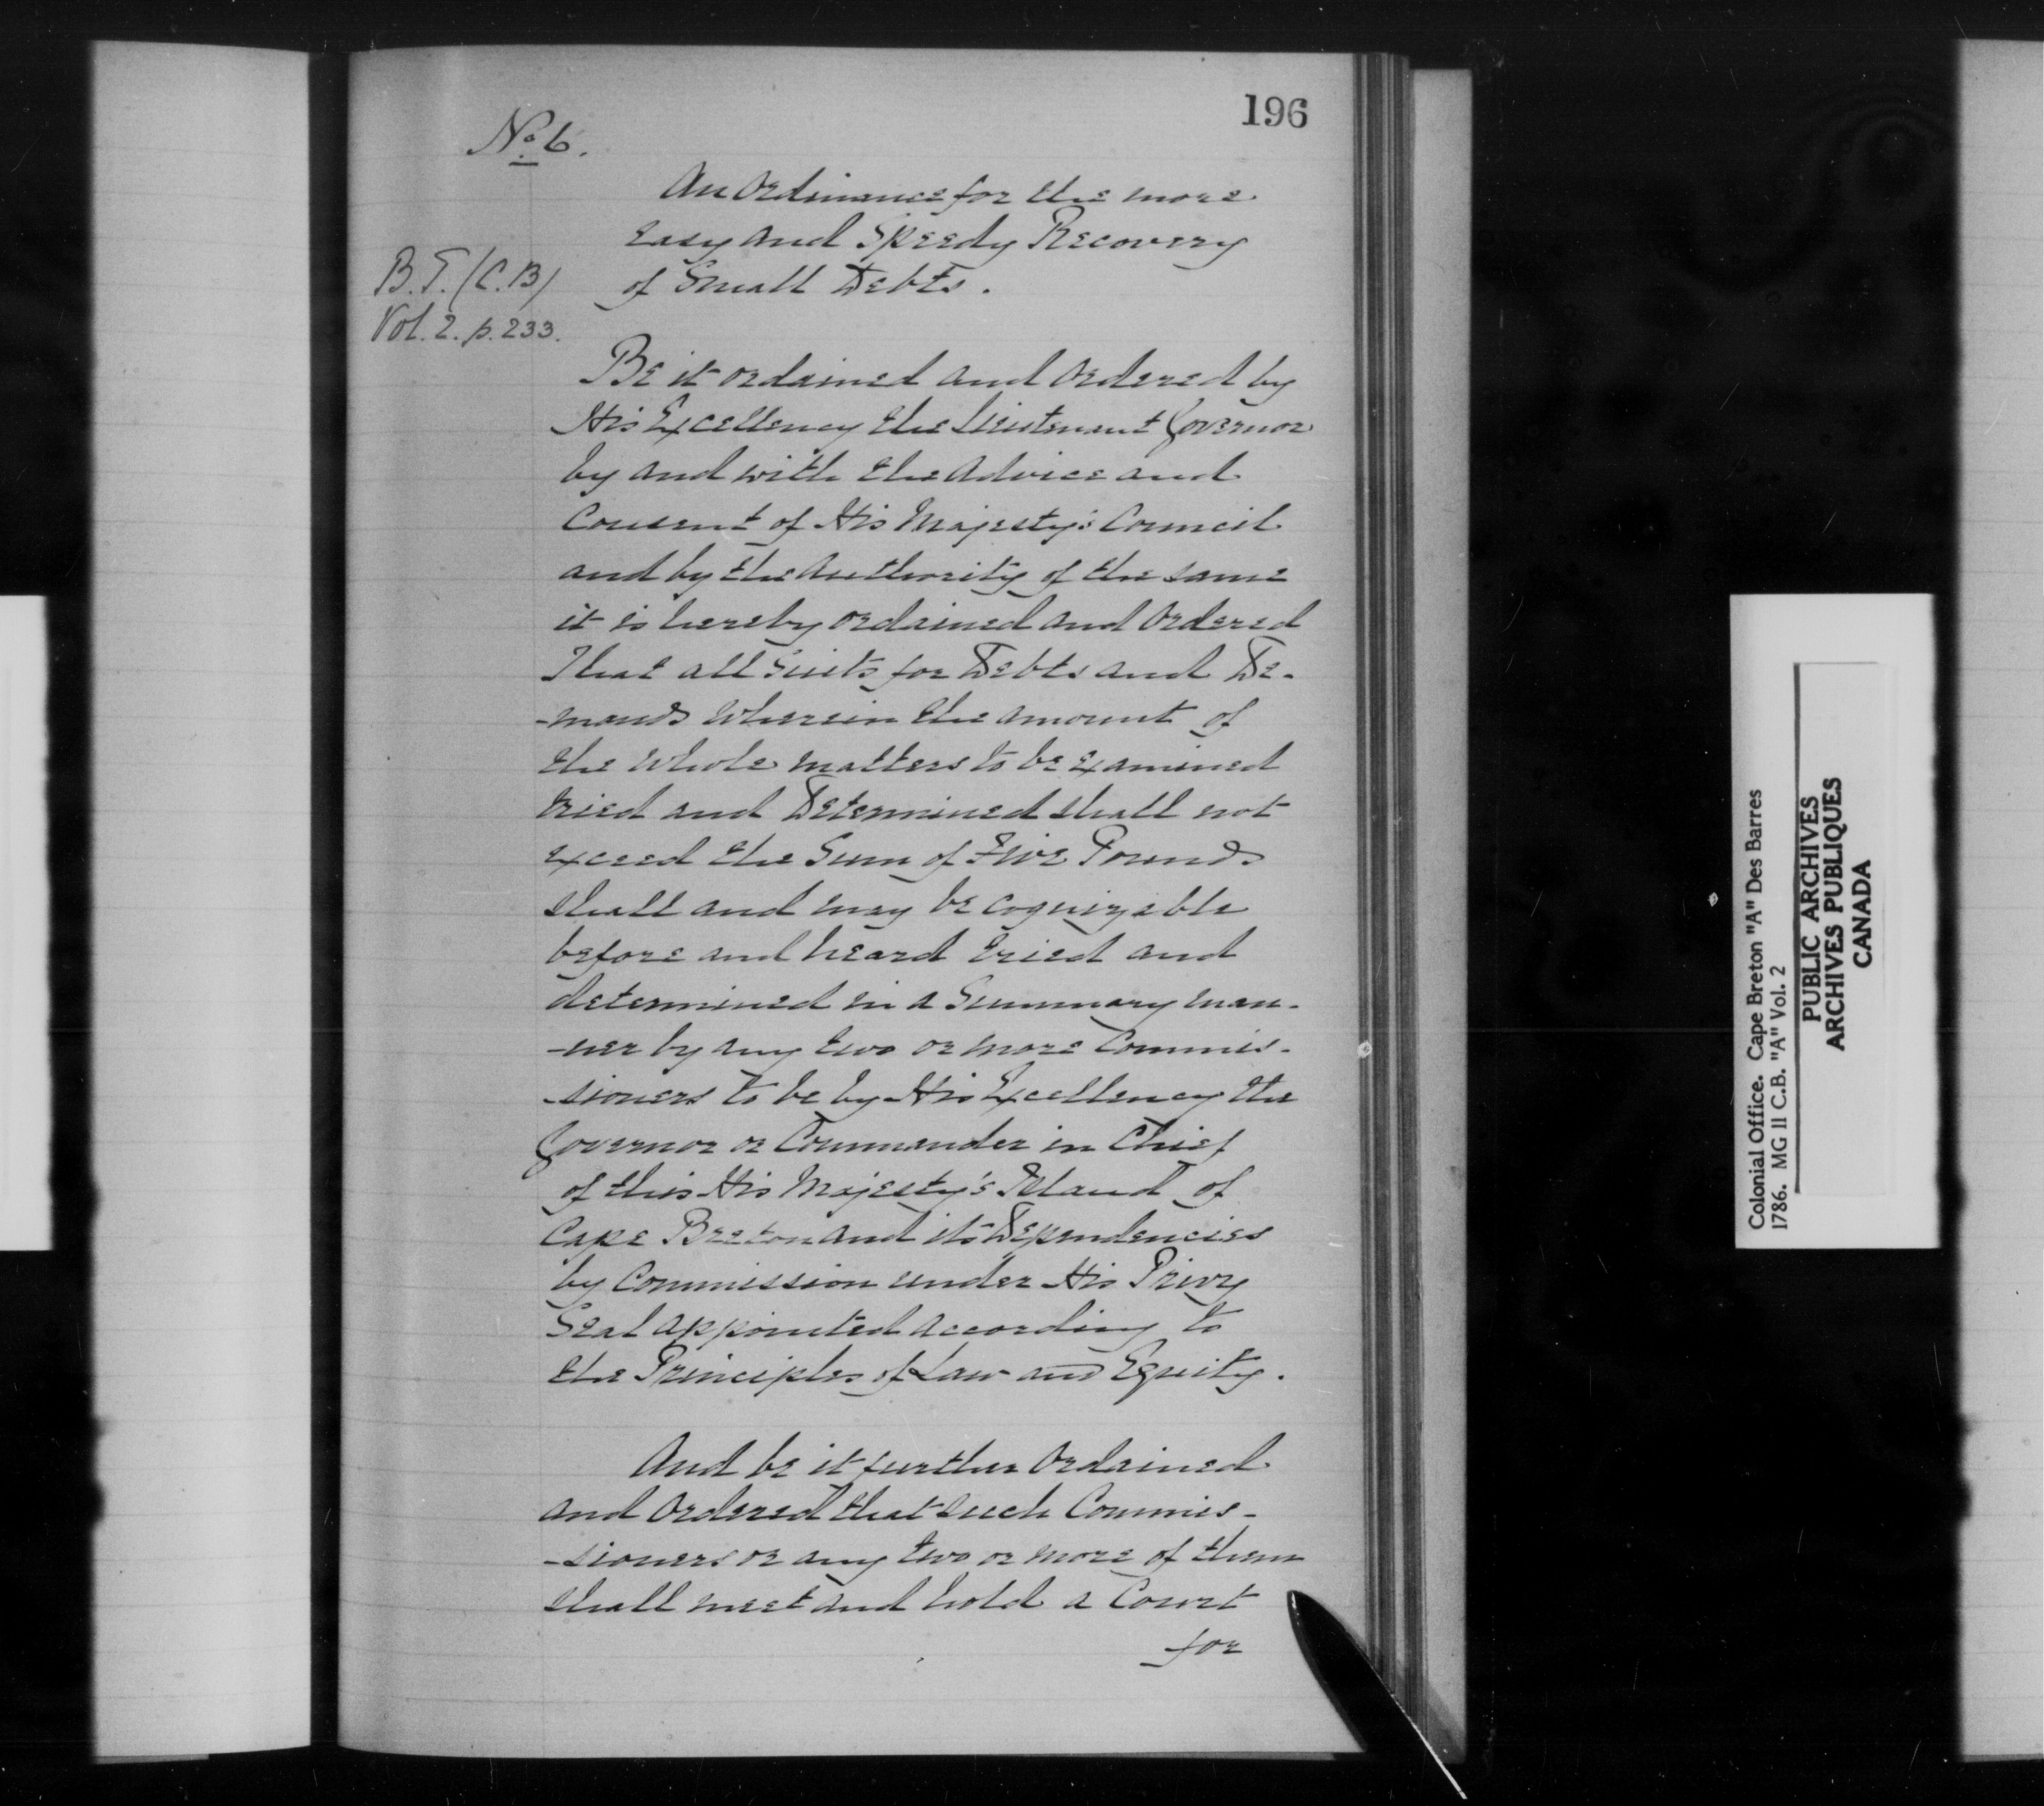 196
No. 6.
An Ordinance for the more
easy and Speedy Recovery
of Small Debts.
B.T. (C.B)
Vol. 2. p. 233.
Be it ordained and ordered by
His Excellency the Lieutenant Governor
by and with the Advice and
Consent of His Majesty's Council
and by the Authority of the same
it is hereby ordained and ordered
That all Suits for Debts and De-
-mands wherein the amount of
the whole matters to be examined
tried and Determined shall not
exceed the Sum of Five Pounds
shall and may be cognizable
before and heard tried and
determined in a Summary man-
-ner by any two or more Commis-
-sioners to be by His Excellency the
Governor or Commander in Chief
of this His Majesty's Island of
Cape Breton and its Dependencies
by Commission under His Privy
Seal appointed according to
the Principles of Law and Equity.
And be it further Ordained
and ordered that such Commis-
-sioners or any two or more of them
shall meet and hold a Court
for
Colonial Office. Cape Breton "A" Des Barres
1786. MG II C.B. "A" Vol. 2
PUBLIC ARCHIVES
ARCHIVES PUBLIQUES
CANADA